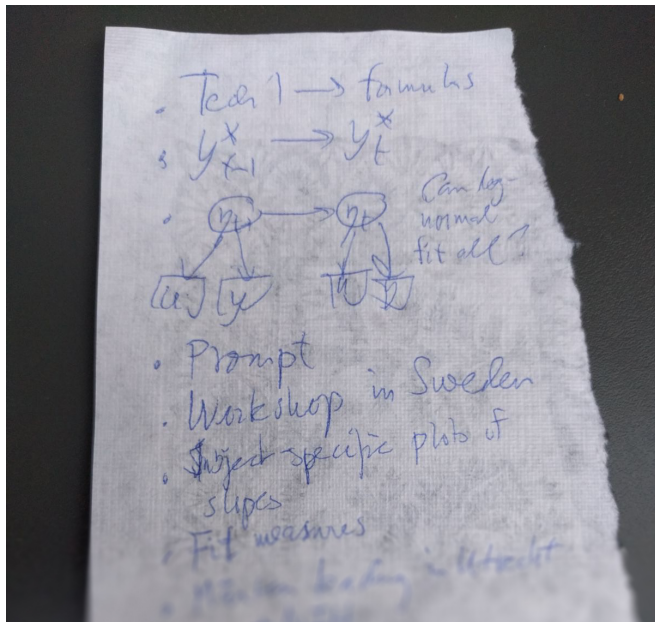 . Tech 1 → formulas
. y*t-1 → y*t
. ηt-1 → ηt
Can log-
normal
fit all?
u y u y
. Prompt
. Workshop in Sweden
. Subject-specific plots of
slopes
. Fit measures
. in Utrecht